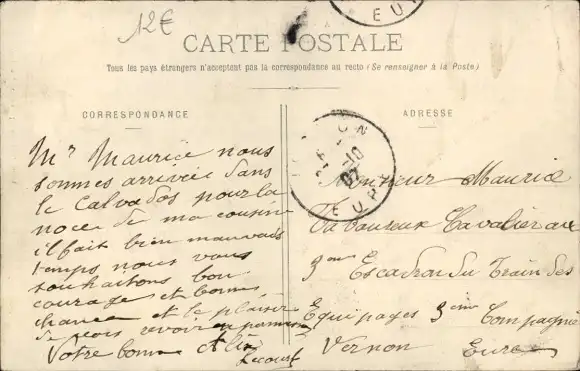 12€
CARTE POSTALE
Tous les pays étrangers n'acceptent pas la correspondance au recto (Se renseigner à la Poste)
CORRESPONDANCE
ADRESSE
Mr Maurice nous
sommes arrivée dans
le Calvados pour la
noce de ma cousine
il fait bien mauvais
temps nous vous
souhaitons bon
courage et bonne
chance et le plaisir
de vous revoir en
Votre bonne
Lecourt
Monsieur Maurice
Cavalier au
3eme Escadron du Train des
Equipages 3eme Compagnie
Vernon Eure
EURE